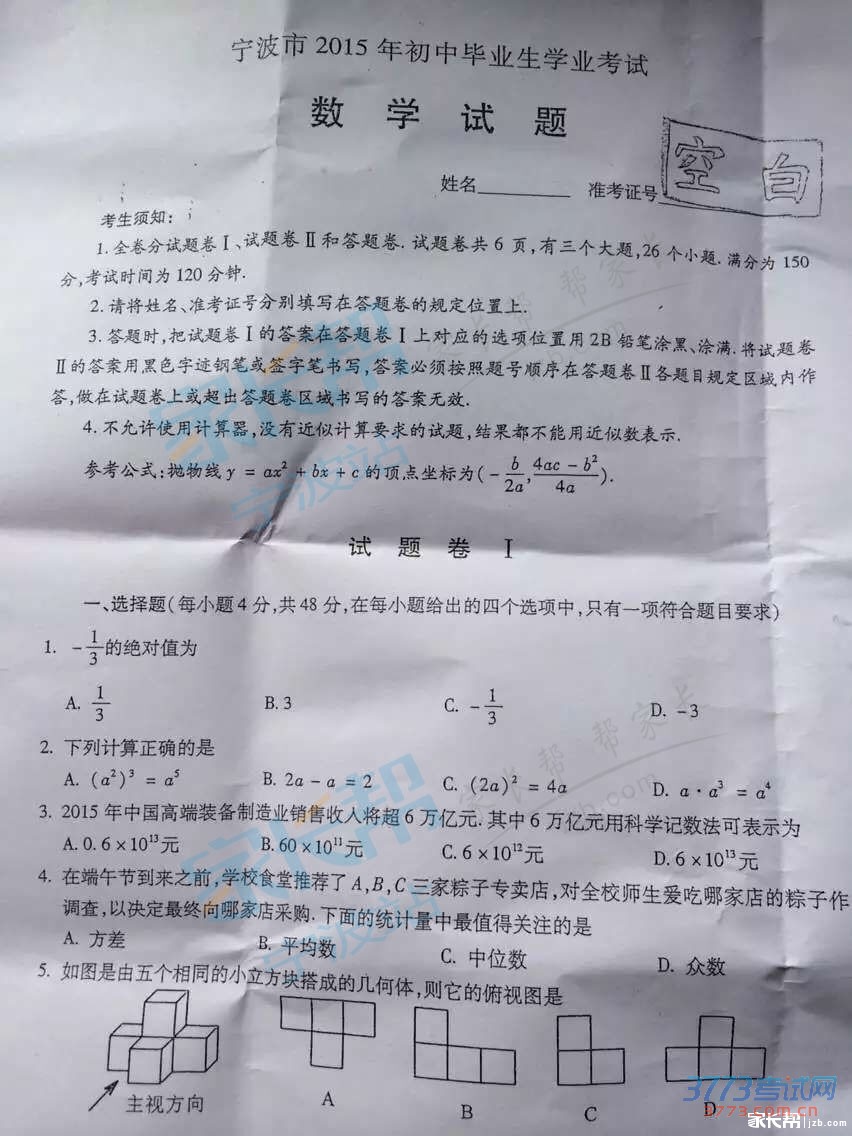 宁波市 2015 年初中毕业生学业考试
数 学 试 题
姓名________ 准考证号
空 白
考生须知:
1. 全卷分试题卷Ⅰ、试题卷Ⅱ和答题卷. 试题卷共 6 页,有三个大题,26 个小题. 满分为 150
分,考试时间为 120 分钟.
2. 请将姓名、准考证号分别填写在答题卷的规定位置上.
3. 答题时,把试题卷Ⅰ的答案在答题卷Ⅰ上对应的选项位置用 2B 铅笔涂黑、涂满. 将试题卷
Ⅱ的答案用黑色字迹钢笔或签字笔书写,答案必须按照题号顺序在答题卷Ⅱ各题目规定区域内作
答,做在试题卷上或超出答题卷区域书写的答案无效.
4. 不允许使用计算器,没有近似计算要求的试题,结果都不能用近似数表示.
参考公式:抛物线 y = ax² + bx + c 的顶点坐标为(-b/2a, (4ac - b²)/4a).
试 题 卷 Ⅰ
一、选择题(每小题 4 分,共 48 分,在每小题给出的四个选项中,只有一项符合题目要求)
1. -1/3的绝对值为
A. 1/3 B. 3 C. -1/3 D. -3
2. 下列计算正确的是
A. (a²)³ = a⁵ B. 2a - a = 2 C. (2a)² = 4a D. a·a³ = a⁴
3. 2015 年中国高端装备制造业销售收入将超 6 万亿元. 其中 6 万亿元用科学记数法可表示为
A. 0.6×10¹³元 B. 60×10¹¹元 C. 6×10¹²元 D. 6×10¹³元
4. 在端午节到来之前,学校食堂推荐了 A,B,C 三家粽子专卖店,对全校师生爱吃哪家店的粽子作
调查,以决定最终向哪家店采购. 下面的统计量中最值得关注的是
A. 方差 B. 平均数 C. 中位数 D. 众数
5. 如图是由五个相同的小立方块搭成的几何体,则它的俯视图是
主视方向 A B C D
家长帮
宁波站
家长帮
宁波站
3773考试网
3773.com.cn
家长帮 jzb.com